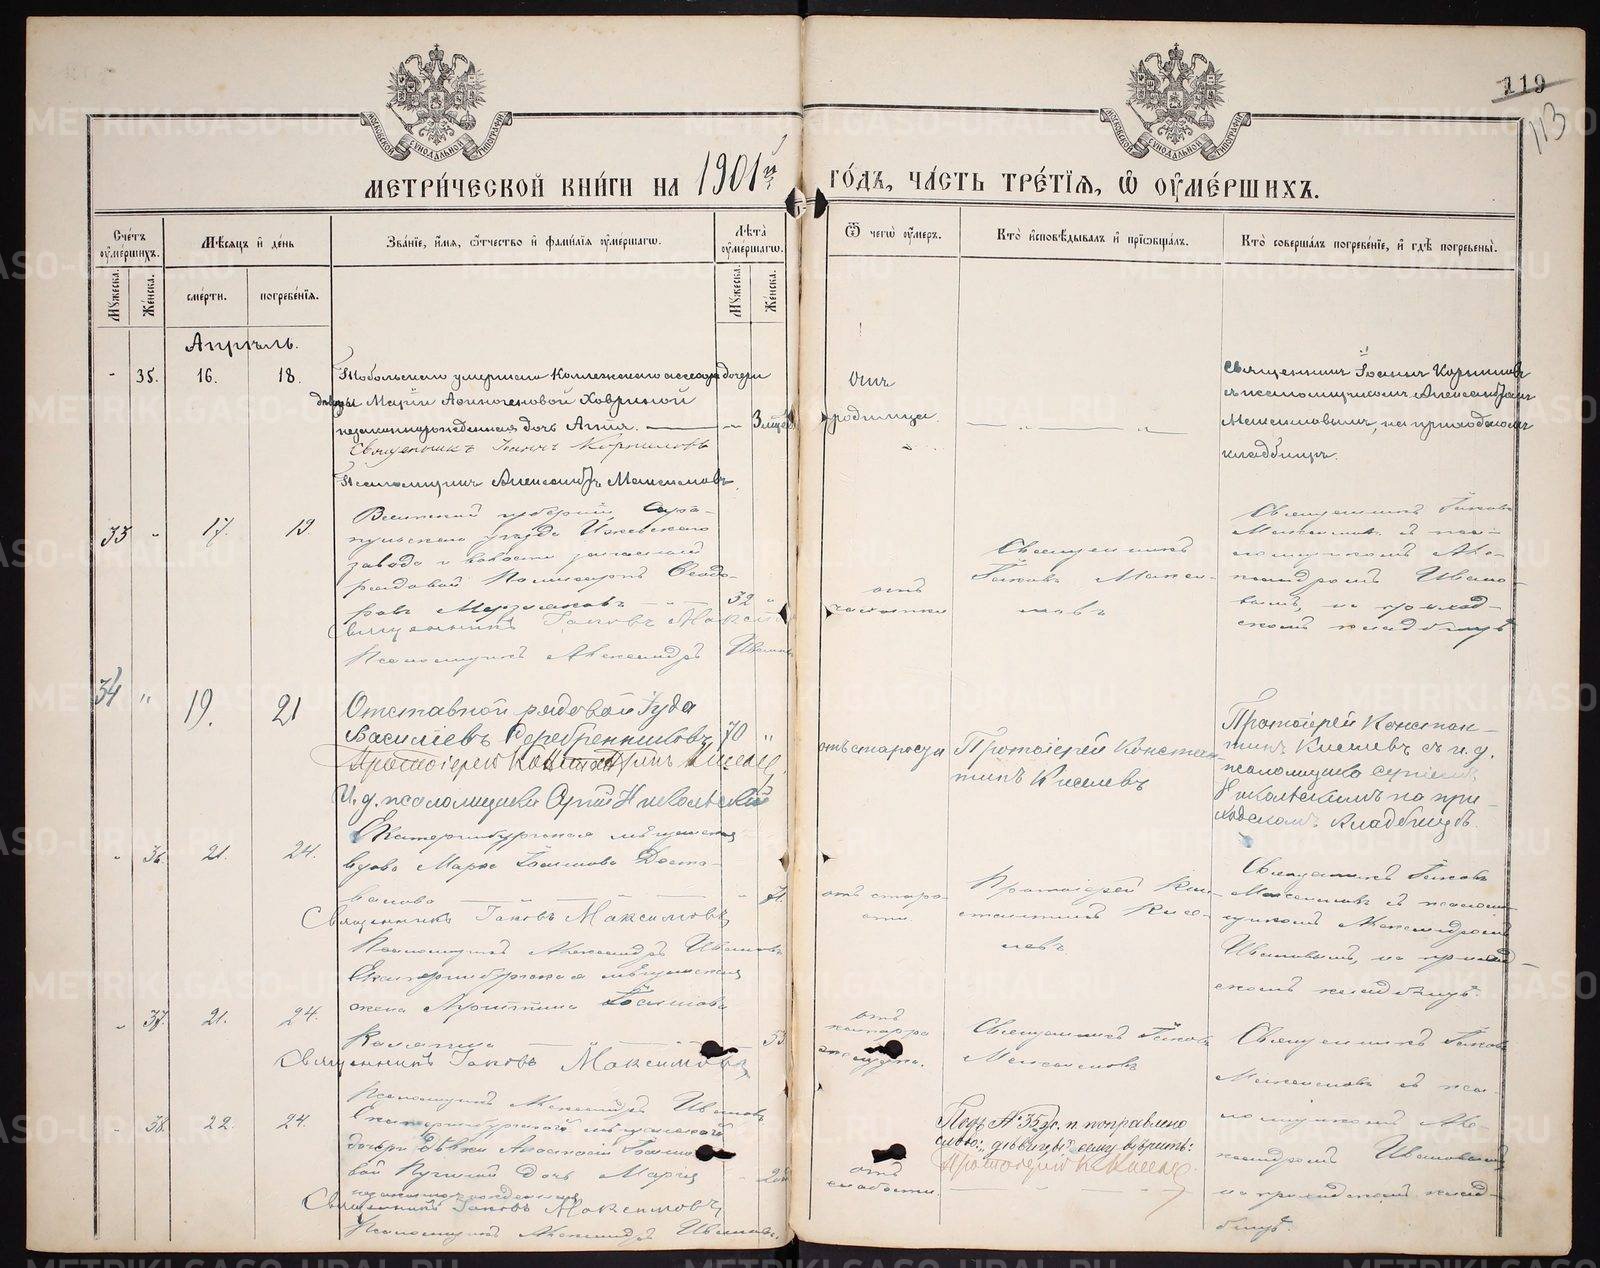 119
113
МЕТРИ́ЧЕСКОЙ КНИ́ГИ НА 1901й ГО́ДЪ, ЧА́СТЬ ТРЕ́ТІЯ, Ѿ ОУ҆МЕ́РШИХЪ.
Сче́тъ оу҆ме́ршихъ.
Мѣ́сяцъ и҆ де́нь
Зва́ніе, и҆́мя, ѻ҆́тчество и҆ фами́лія оу҆ме́ршагѡ.
Лѣ́та оу҆ме́ршагѡ.
Ѿ чегѡ̀ оу҆́меръ.
Кто̀ и҆сповѣ́дывалъ и҆ прїѡбща́лъ.
Кто̀ соверша́лъ погребе́ніе, и҆ гдѣ̀ погребены̀.
Му́жеска.
Же́нска.
сме́рти.
погребе́нія.
Му́жеска.
Же́нска.
Апрѣль.
- 35. 16. 18.
Тобольскаго умершаго Коллежскаго ассесора дочери
дѣвицы Маріи Аѳиногеновой Ховриной
незаконнорожденная дочь Анна. — 3 мѣс.
Священникъ Іоаннъ Корниловъ
Псаломщикъ Александръ Максимовъ.
Отъ
родимца
Священникъ Іоаннъ Корниловъ
съ псаломщикомъ Александромъ
Максимовымъ, на приходскомъ
кладбищѣ.
33 " 17. 19.
Вятской губерніи, Сара-
пульскаго уѣзда Ижевскаго
завода запасный
рядовой Ѳеодо-
ровъ Мерзляковъ 32 "
Священникъ Іаковъ Максимовъ
Псаломщикъ Александръ Ивановъ
отъ
чахотки
Священникъ
Іаковъ Макси-
мовъ
Священникъ Іаковъ
Максимовъ съ пса-
ломщикомъ Але-
ксандромъ Ивано-
вымъ, на приход-
скомъ кладбищѣ
34 " 19. 21
Отставной рядовой Іуда
Василіевъ Серебренниковъ 70 "
Протоіерей Константинъ Киселевъ
И. д. псаломщика Сергій Никольскій
отъ старости
Протоіерей Констан-
тинъ Киселевъ
Протоіерей Констан-
тинъ Киселевъ съ и. д.
псаломщика Сергіемъ
Никольскимъ на при-
ходскомъ кладбищѣ.
" 36. 21. 24.
Екатеринбургская мѣщанская
вдова Марѳа Іоаннова Досто-
валова " 71.
Священникъ Іаковъ Максимовъ
Псаломщикъ Александръ Ивановъ
отъ старо-
сти
Протоіерей Кон-
стантинъ Кисе-
левъ
Священникъ Іаковъ
Максимовъ съ псалом-
щикомъ Александромъ
Ивановымъ, на приход-
скомъ кладбищѣ.
" 37. 21. 24.
Екатеринбургская мѣщанская
жена Іоаннова
53
Священникъ Іаковъ Максимовъ
Псаломщикъ Александръ Ивановъ
отъ
катарра
желудка.
Священникъ Іаковъ
Максимовъ
Священникъ Іаковъ
Максимовъ съ пса-
ломщикомъ Але-
ксандромъ Ивановымъ
на приходскомъ клад-
бищѣ.
- 38. 22. 24.
Екатеринбургской мѣщанской
дочери дѣвки Анастасіи Іоанно-
вой дочь Марія
незаконнорожденная
Священникъ Іаковъ Максимовъ
Псаломщикъ Александръ Ивановъ.
отъ
слабости.
Подъ № 35 ж. п поправлено
слово: „дѣвицы" сему вѣрить:
Протоіерей К. Киселевъ